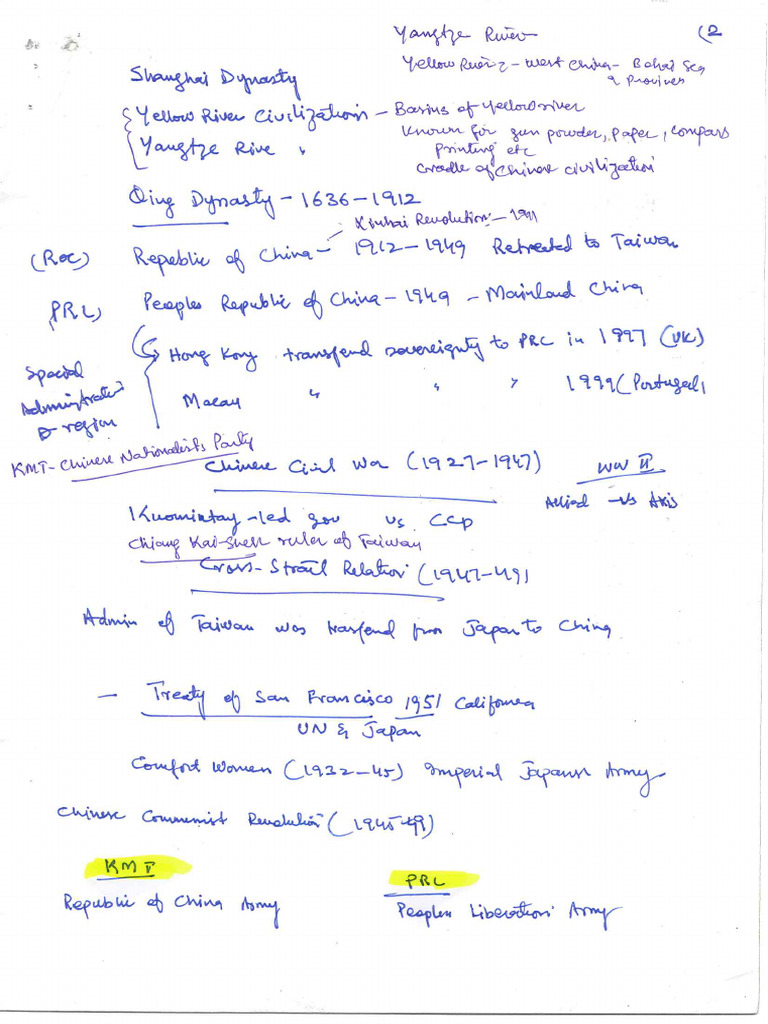 Yangtze River
(2
Yellow River - West China - Bohai Sea
9 Provinces
Shanghai Dynasty
Yellow River Civilization - Basins of Yellow river
Yangtze Rive "
Known for gun powder, Paper, Compass
Printing etc
Cradle of Chinese Civilization
Qing Dynasty - 1636-1912
Xinhai Revolution - 1911
(ROC) Republic of China - 1912-1949 Retreated to Taiwan
PRC) Peoples Republic of China - 1949 - Mainland China
Hong Kong transfend sovereignty to PRC in 1997 (UK)
Special
Administrative
region
Macau " " " 1999 (Portugal)
KMT - Chinese Nationalists Party
Chinese Civil War (1927-1947)
WW II
Allied - Vs Axis
Kuomintay - led gov vs CCP
Chiang Kai-Shek ruler of Taiwan
Cross-Strait Relation (1947-49)
Admin of Taiwan was trasfend from Japan to China
- Treaty of San Francisco 1951 California
UN & Japan
Comfort Women (1932-45) Imperial Japanese Army
Chinese Communist Revolution (1945-49)
KMT
PRC
Republic of China Army
Peoples Liberation Army